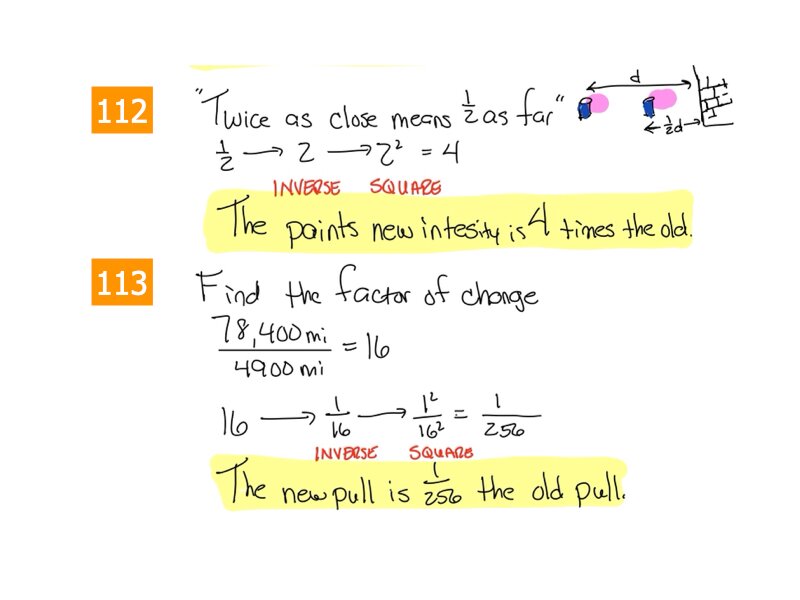 112
"Twice as close means 1/2 as far"
d
1/2d
1/2 → 2 → 2² = 4
INVERSE SQUARE
The paints new intesity is 4 times the old.
113
Find the factor of change
78,400 mi / 4900 mi = 16
16 → 1/16 → 1²/16² = 1/256
INVERSE SQUARE
The new pull is 1/256 the old pull.